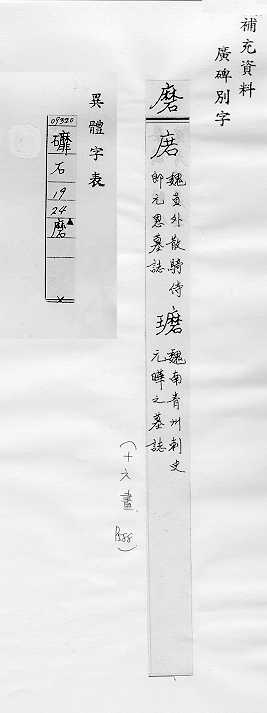 補充資料
廣碑別字
磨
磨 魏員外散騎侍
郎元恩墓誌
魏南青州刺史
元曄之墓誌
(十六畫 P388)
異體字表
09320
䃺
石
19
24
磨